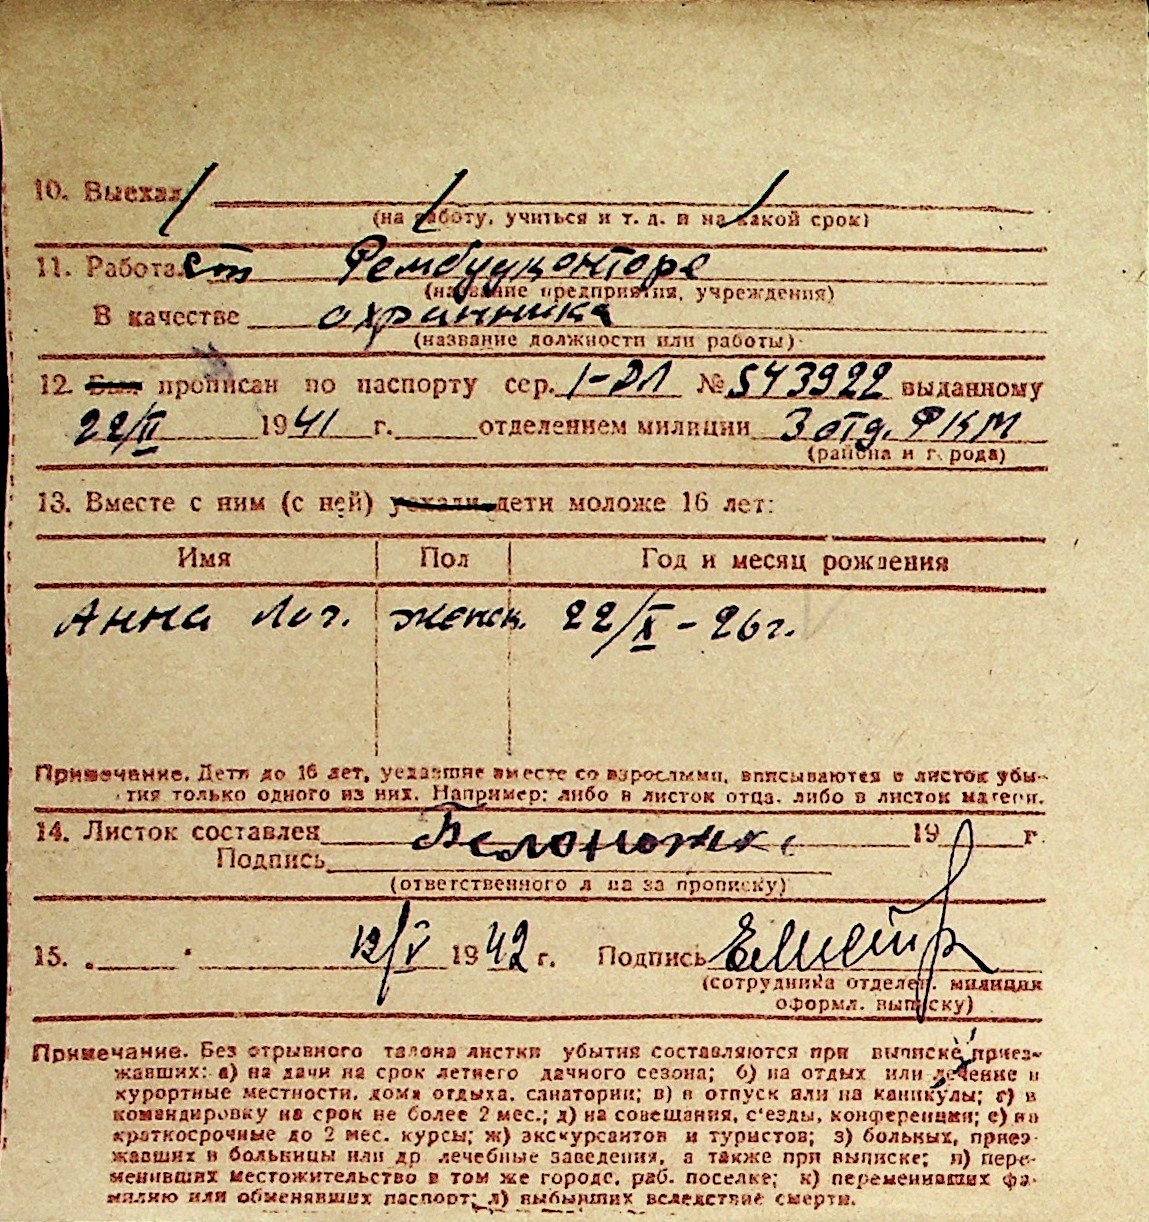 10. Выехал
(на работу, учиться и т. д. и на какой срок)
11. Работает Рембудконторе
(название предприятия, учреждения)
В качестве охранника
(название должности или работы)
12. Был прописан по паспорту сер. 1-ДЛ № 543922 выданному
22/II 1941 г. отделением милиции 3 отд. РКМ
(района и города)
13. Вместе с ним (с ней) уехали дети моложе 16 лет:
Имя Пол Год и месяц рождения
Анна женск. 22/X - 26 г.
Примечание. Дети до 16 лет, уехавшие вместе со взрослыми, вписываются в листок убы-
тия только одного из них. Например: либо в листок отца, либо в листок матери.
14. Листок составлен 19 г.
Подпись
(ответственного лица за прописку)
15. 12/V 1942 г. Подпись
(сотрудника отделен. милиции
оформл. выписку)
Примечание. Без отрывного талона листки убытия составляются при выписке приез-
жавших: а) на дачи на срок летнего дачного сезона; б) на отдых или лечение в
курортные местности, дома отдыха, санатории; в) в отпуск или на каникулы; г) в
командировку на срок не более 2 мес.; д) на совещания, с'езды, конференции; е) на
краткосрочные до 2 мес. курсы; ж) экскурсантов и туристов; з) больных, приез-
жавших в больницы или др лечебные заведения, а также при выписке; и) пере-
менивших местожительство в том же городе, раб. поселке; к) переменивших фа-
милию или обменявших паспорт; л) выбывших вследствие смерти.